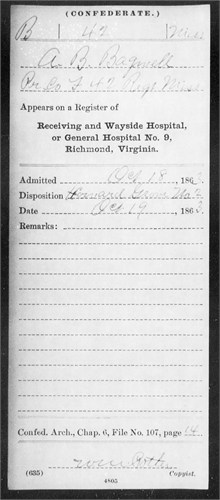 (CONFEDERATE.)
B | 42 | Miss
A. B. Bagwell
Pv. Co. F 42 Reg. Miss.
Appears on a Register of
Receiving and Wayside Hospital,
or General Hospital No. 9,
Richmond, Virginia.
Admitted Oct 18, 1863.
Disposition Howard Grove No 2
Date Oct 19, 1863
Remarks:
Confed. Arch., Chap. 6, File No. 107, page 14
(635) Copyist.
4803